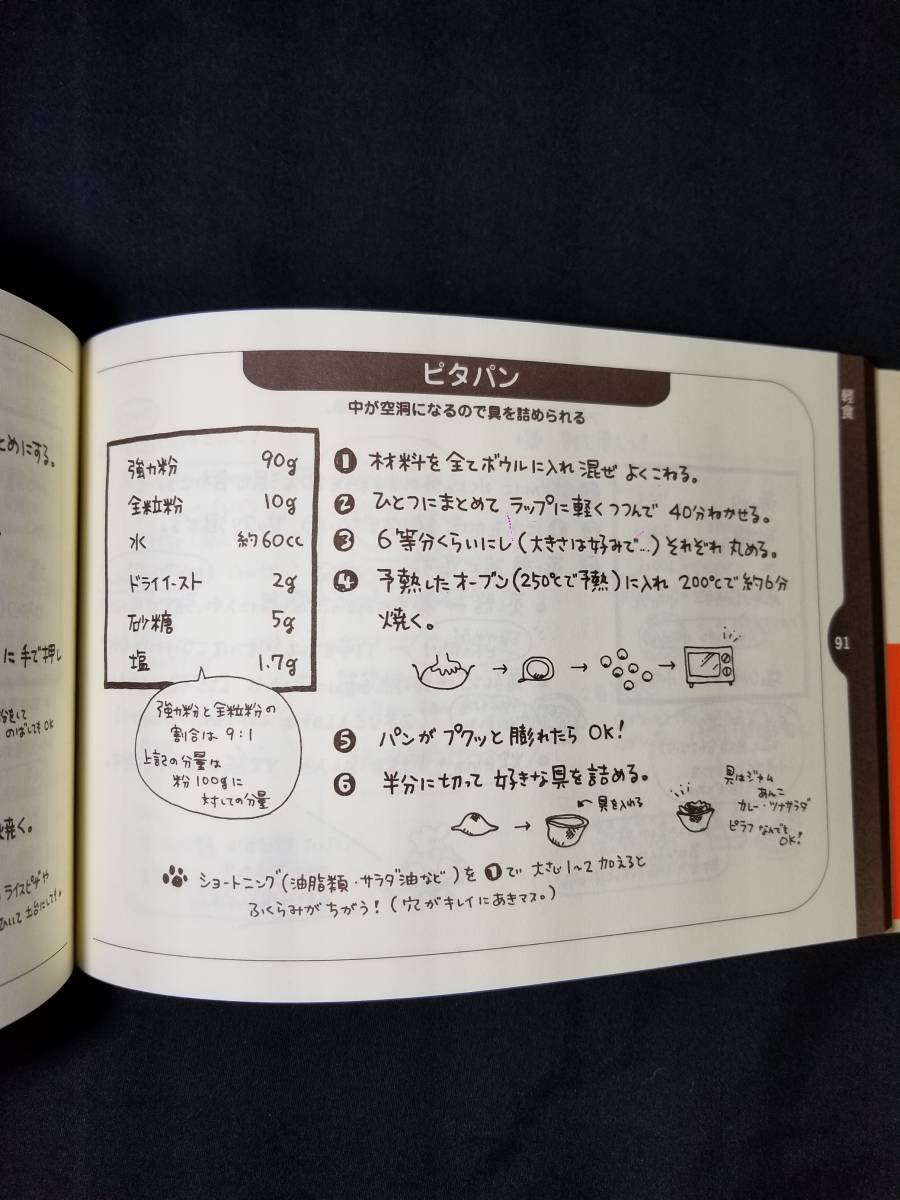 とめにする。
に手で押し
のばしてもOK
焼く。
ライスピザや
ピタパン
中が空洞になるので具を詰められる
強力粉 90g
全粒粉 10g
水 約60cc
ドライイースト 2g
砂糖 5g
塩 1.7g
強力粉と全粒粉の
割合は 9:1
上記の分量は
粉100gに
対しての分量
❶ 材料を全てボウルに入れ混ぜ よくこねる。
❷ ひとつにまとめて ラップに軽くつつんで 40分ねかせる。
❸ 6等分くらいにし(大きさは好みで…)それぞれ 丸める。
❹ 予熱したオーブン(250℃で予熱)に入れ 200℃で約6分
焼く。
❺ パンが プクッと 膨れたら OK!
❻ 半分に切って 好きな具を詰める。
具を入れる
具はジャム
あんこ
カレー・ツナサラダ
ピラフ なんでも
OK!
ショートニング(油脂類・サラダ油など)を❶で 大さじ1~2 加えると
ふくらみがちがう!(穴がキレイにあきマス。)
軽食
91